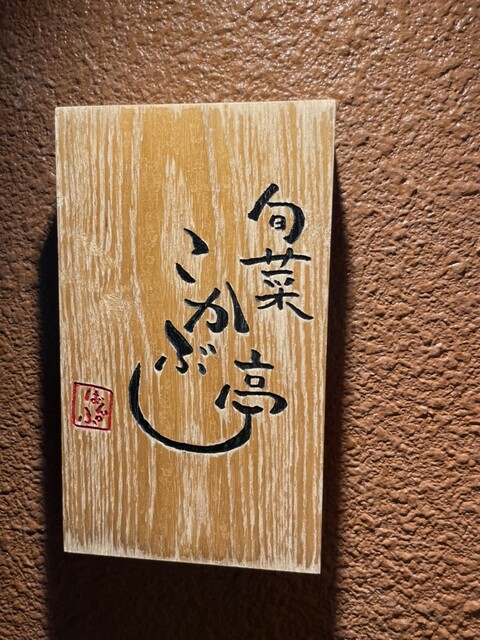 旬菜
こかぶ亭